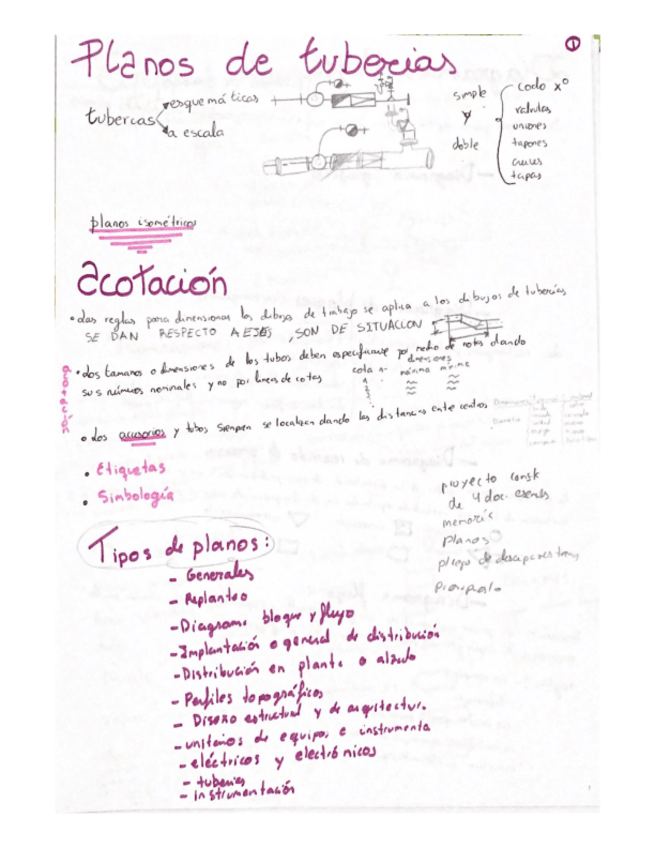 Planos de tuberias
1
tubercas
esquemáticas
a escala
simple
y
doble
codo xº
valvulas
uniones
tapones
cruces
tapas
planos isométricos
acotación
• las reglas para dimensionar los dibujos de trabajo se aplica a los dibujos de tuberías
SE DAN RESPECTO A EJES, SON DE SITUACION
• los tamanos o dimensiones de los tubos deben especificarse por medio de notas dando
sus números nominales y no por lineas de cotas
cota
dimensiones
máxima mínima
acotación
• los accesorios y tubos siempre se localizan dando las distancias entre centros
• Etiquetas
• Simbología
proyecto const
de 4 doc.
memoria
planos
pliego de
Tipos de planos:
- Generales
- Replanteo
- Diagrama bloque y flujo
- Implantación o general de distribución
- Distribución en planta o alzado
- Perfiles topográficos
- Diseño estructural y de arquitectur.
- unitarios de equipo, e instrumenta
- eléctricos y electrónicos
- tuberias
- instrumentación